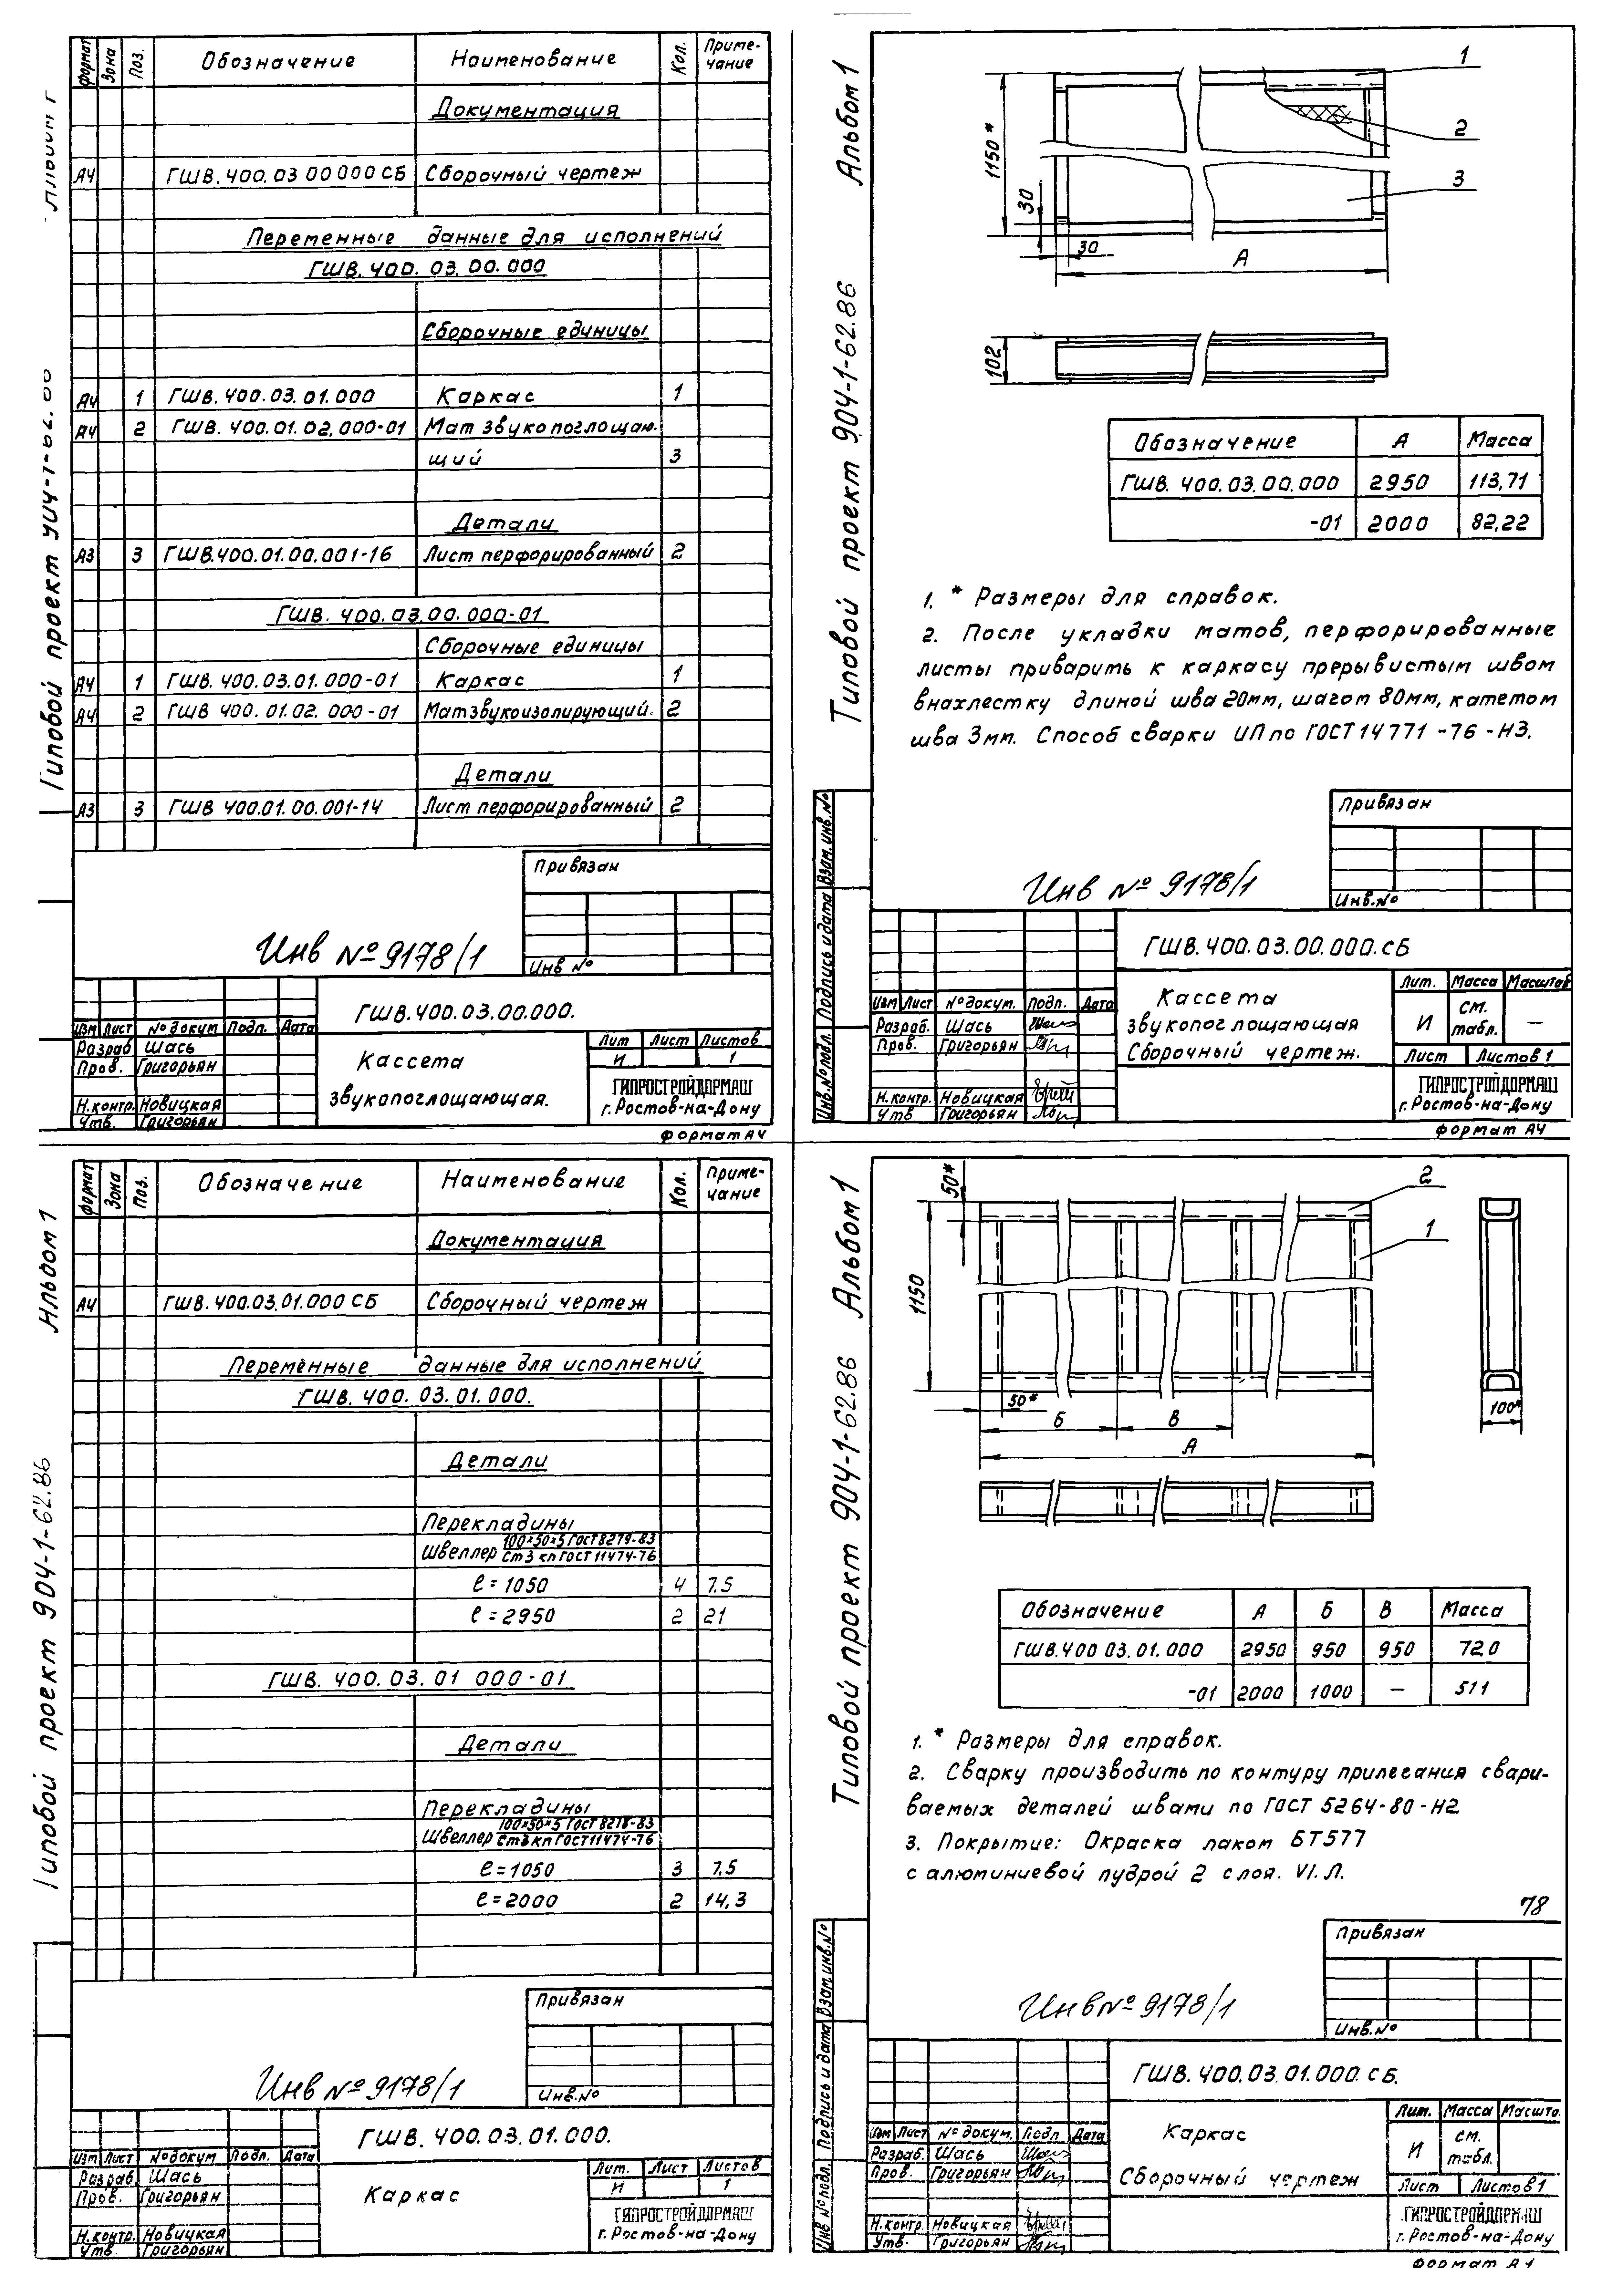 формат Зона Поз. Обозначение Наименование Кол. Приме-
чание
Документация
А4 ГШВ.400.03 00 000 СБ Сборочный чертеж
Переменные данные для исполнений
ГШВ.400.03.00.000
Сборочные единицы
А4 1 ГШВ.400.03.01.000 Каркас 1
А4 2 ГШВ.400.01.02.000-01 Мат звукопоглощаю-
щий 3
Детали
А3 3 ГШВ.400.01.00.001-16 Лист перфорированный 2
ГШВ.400.03.00.000-01
Сборочные единицы
А4 1 ГШВ.400.03.01.000-01 Каркас 1
А4 2 ГШВ 400.01.02.000-01 Мат звукоизолирующий. 2
Детали
А3 3 ГШВ 400.01.00.001-14 Лист перфорированный 2
Привязан
Инв №
Инв № 9178/1
ГШВ.400.03.00.000.
Изм Лист № докум Подп. Дата
Разраб Шась
Пров. Григорьян
Н.контр. Новицкая
Утв. Григорьян
Кассета
звукопоглощающая.
Лит Лист Листов
И 1
ГИПРОСТРОЙДОРМАШ
г.Ростов-на-Дону
Формат А4
Типовой проект 904-1-62.86 Альбом 1
1
2
3
1150*
30
30
А
102
Обозначение А Масса
ГШВ.400.03.00.000 2950 113,71
-01 2000 82,22
1. * Размеры для справок.
2. После укладки матов, перфорированные
листы приварить к каркасу прерывистым швом
внахлестку длиной шва 20мм, шагом 80мм, катетом
шва 3мм. Способ сварки ИП по ГОСТ 14771-76-Н3.
Привязан
Инв.№
Инв № 9178/1
Инв.№ подл. Подпись и дата Взам.инв.№
ГШВ.400.03.00.000.СБ
Изм Лист № докум. Подп. Дата
Разраб. Шась
Пров. Григорьян
Н.контр. Новицкая
Утв Григорьян
Кассета
звукопоглощающая
Сборочный чертеж.
Лит. Масса Масштаб
И см.
табл. —
Лист Листов 1
ГИПРОСТРОЙДОРМАШ
г.Ростов-на-Дону
Формат А4
Типовой проект 904-1-62.86 Альбом 1
формат Зона Поз. Обозначение Наименование Кол. Приме-
чание
Документация
А4 ГШВ.400.03.01.000 СБ Сборочный чертеж
Переменные данные для исполнений
ГШВ.400.03.01.000.
Детали
Перекладины
Швеллер 100×50×5 ГОСТ 8279-83
Ст3 кп ГОСТ 11474-76
ℓ=1050 4 7.5
ℓ=2950 2 21
ГШВ.400.03.01 000-01
Детали
Перекладины
Швеллер 100×50×5 ГОСТ 8278-83
Ст3 кп ГОСТ 11474-76
ℓ=1050 3 7.5
ℓ=2000 2 14,3
Привязан
Инв.№
Инв № 9178/1
ГШВ.400.03.01.000.
Изм Лист № докум Подп. Дата
Разраб Шась
Пров. Григорьян
Н.контр. Новицкая
Утв. Григорьян
Каркас
Лит. Лист Листов
И 1
ГИПРОСТРОЙДОРМАШ
г.Ростов-на-Дону
Типовой проект 904-1-62.86 Альбом 1
50*
2
1
1150
50*
Б В
А
100*
Обозначение А Б В Масса
ГШВ.400 03.01.000 2950 950 950 72,0
-01 2000 1000 — 511
1. * Размеры для справок.
2. Сварку производить по контуру прилегания свари-
ваемых деталей швами по ГОСТ 5264-80-Н2
3. Покрытие: Окраска лаком БТ577
с алюминиевой пудрой 2 слоя. VI.Л.
78
Привязан
Инв.№
Инв № 9178/1
Инв № подл. Подпись и дата Взам инв.№
ГШВ.400.03.01.000.СБ.
Изм Лист № докум. Подп Дата
Разраб. Шась
Пров. Григорьян
Н.контр. Новицкая
Утв. Григорьян
Каркас
Сборочный чертеж
Лит. Масса Масшта.
И см.
табл.
Лист Листов 1
ГИПРОСТРОЙДОРМАШ
г.Ростов-на-Дону
Формат А1